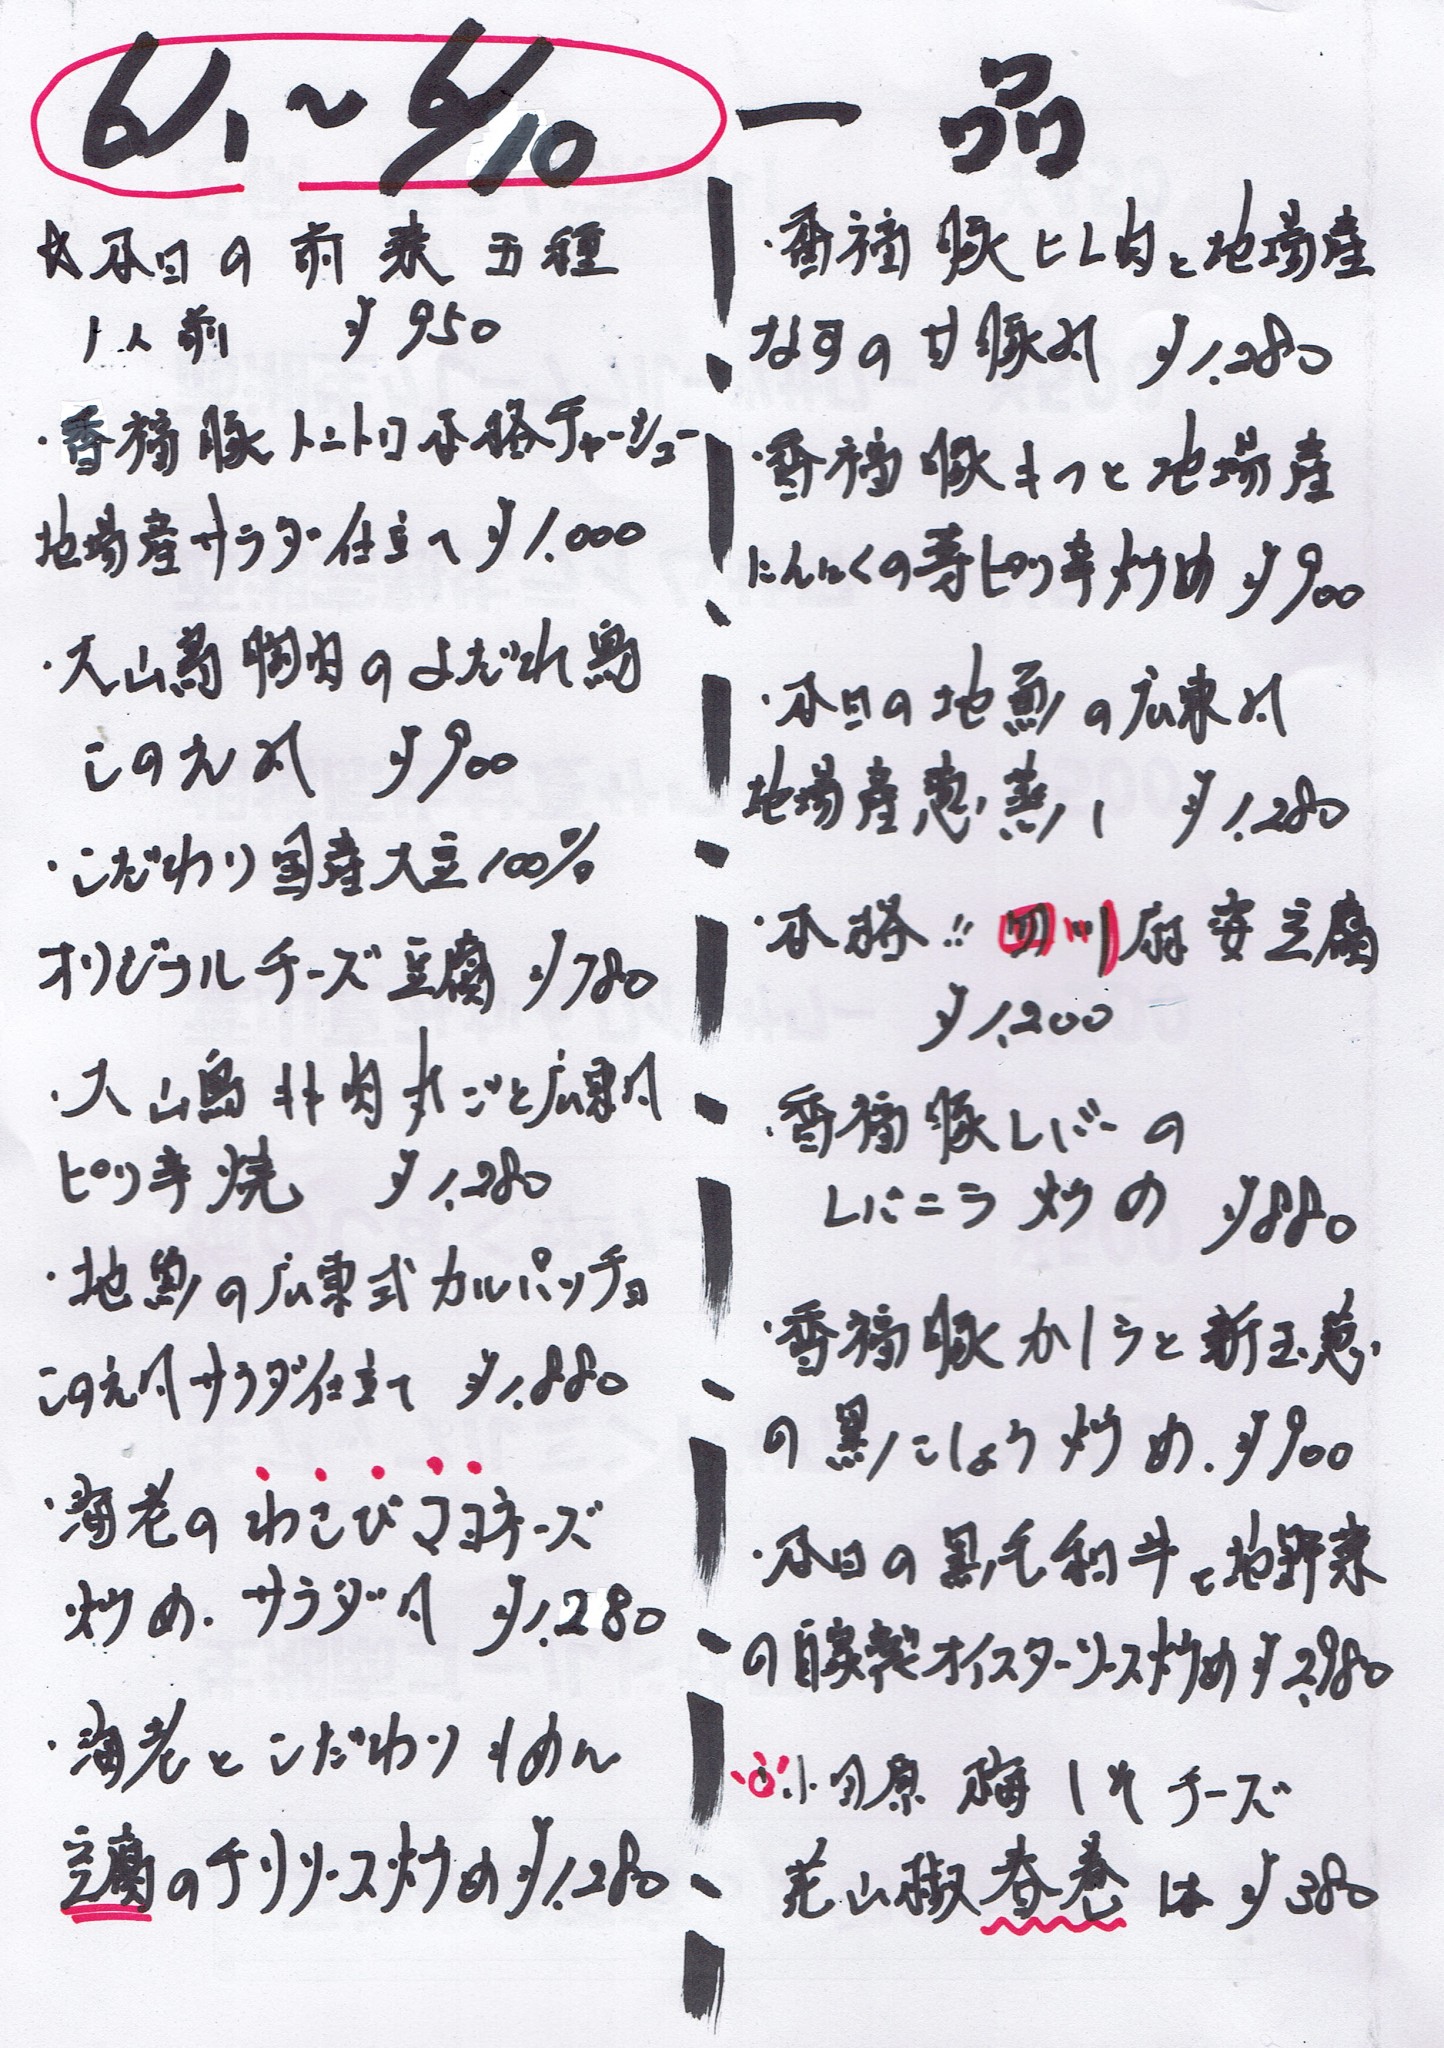 6/1～6/10 一品
☆本日の前菜五種
1人前 ¥950
・香福豚トントロ本格チャーシュー
地場産サラダ仕立て ¥1.000
・大山鳥胸肉のよだれ鳥
このえ風 ¥900
・こだわり国産大豆100%
オリジナルチーズ豆腐 ¥780
・大山鳥モモ肉丸ごと広東風
ピリ辛焼 ¥1.280
・地魚の広東式カルパッチョ
このえ風サラダ仕立て ¥1.880
・海老のわさびマヨネーズ
炒め.サラダ風 ¥1.280
・海老とこだわりもめん
豆腐のチリソース炒め ¥1.280
・香福豚ヒレ肉と地場産
なすの甘豚風 ¥1.280
・香福豚もつと地場産
にんにくの芽ピリ辛炒め ¥900
・本日の地魚の広東風
地場産葱蒸し ¥1.280
・本格!! 四川麻婆豆腐
¥1.200
・香福豚レバーの
レバニラ炒め ¥880
・香福豚かしらと新玉葱
の黒こしょう炒め. ¥900
・本日の黒毛和牛と地野菜
の自家製オイスターソース炒め ¥2.980
小田原 梅しそチーズ
花山椒春巻 1本 ¥380